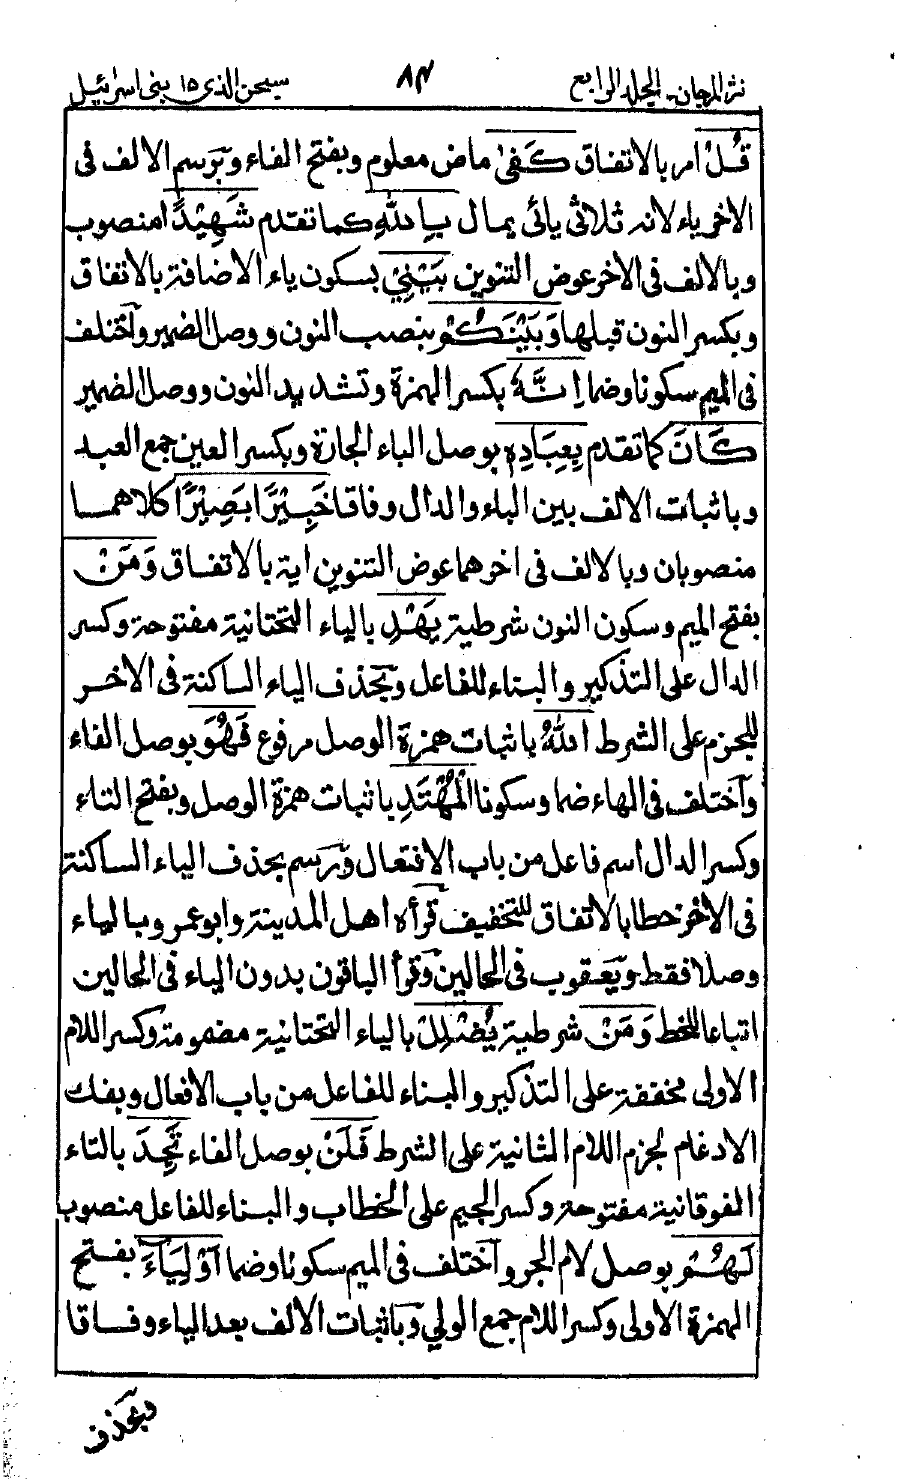 نثر المرجان- الجلد الرابع ٨٣ سبحن الذي ١٥ بنى اسرائيل
قُلْ امر بالاتفاق كَفىٰ ماض معلوم وبفتح الفاء وترسم الالف فى
الاخر ياء لانه ثلاثى يائى يمال بِاللهِ كما تقدم شَهِيْدًا منصوب
وبالالف فى الاخر عوض التنوين بَيْنِيْ بسكون ياء الاضافة بالاتفاق
وبكسر النون قبلها وَبَيْنَكُمْ بنصب النون ووصل الضمير واختلف
فى الميم سكونا وضما اِنَّهٗ بكسر الهمزة وتشديد النون ووصل الضمير
كَانَ كما تقدم بِعِبَادِهٖ بوصل الباء الجارة وبكسر العين جمع العبد
وباثبات الالف بين الباء والدال وفاقا خَبِيْرًا بَصِيْرًا كلاهما
منصوبان وبالالف فى اخرهما عوض التنوين اية بالاتفاق وَمَنْ
بفتح الميم وسكون النون شرطية يَهْدِ بالياء التحتانية مفتوحة وكسر
الدال على التذكير والبناء للفاعل وبحذف الياء الساكنة فى الاخر
للجزم على الشرط اللهُ باثبات همزة الوصل مرفوع فَهُوَ بوصل الفاء
واختلف فى الهاء ضما وسكونا الْمُهْتَدِ باثبات همزة الوصل وبفتح التاء
وكسر الدال اسم فاعل من باب الافتعال ورسم بحذف الياء الساكنة
فى الاخر خطا بالاتفاق للتخفيف قرأه اهل المدينة وابو عمرو بالياء
وصلا فقط ويعقوب فى الحالين وقرأ الباقون بدون الياء فى الحالين
اتباعا للخط وَمَنْ شرطية يُضْلِلْ بالياء التحتانية مضمومة وكسر اللام
الاولى مخففة على التذكير والبناء للفاعل من باب الافعال وبفك
الادغام لجزم اللام الثانية على الشرط فَلَنْ بوصل الفاء تَجِدَ بالتاء
الفوقانية مفتوحة وكسر الجيم على الخطاب والبناء للفاعل منصوب
لَهُمْ بوصل لام الجر واختلف فى الميم سكونا وضما اَوْلِيَاءَ بفتح
الهمزة الاولى وكسر اللام جمع الولي وباثبات الالف بعد الياء وفاقا
وبحذف